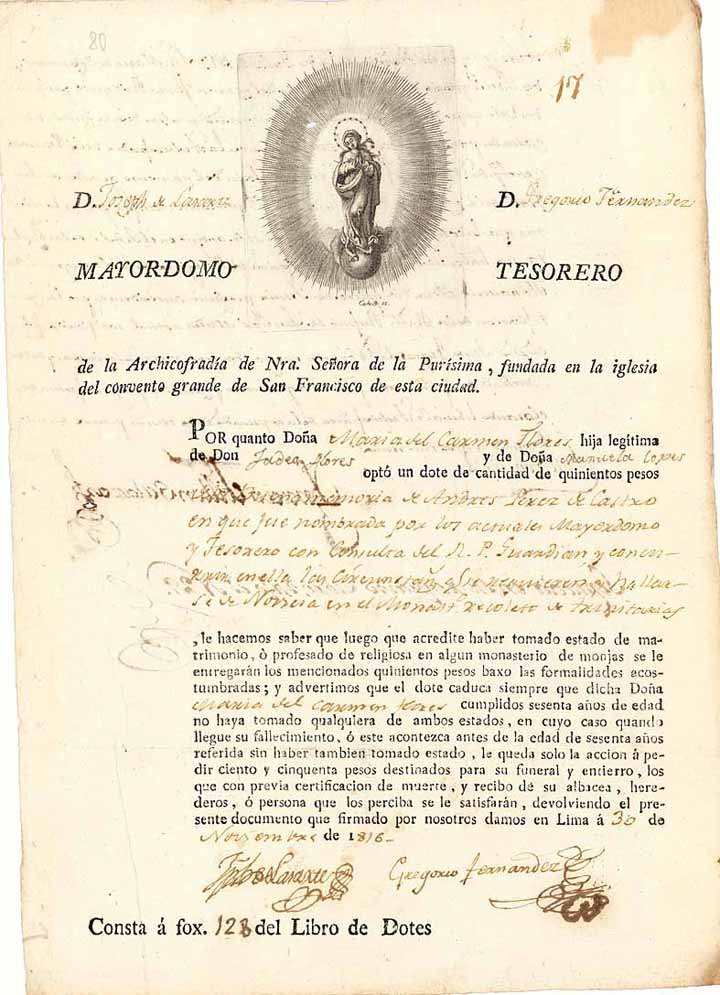 80
17
D. Joseph de Lararte
D. Gregorio Fernandez
MAYORDOMO
TESORERO
de la Archicofradía de Nra. Señora de la Purísima, fundada en la iglesia
del convento grande de San Francisco de esta ciudad.
POR quanto Doña Maria del Carmen Flores hija legítima
de Don Tadeo flores y de Doña Manuela Lopes
optó un dote de cantidad de quinientos pesos
memoria de Andres Perez de Castro
en que fue nombrada por los actuales Mayordomo
y Tesorero con Consulta del R. P. Guardian y concu-
rrir en ella las se requieren a hallar-
se de Novicia en el Monast. Recoleto de trinitarias
, le hacemos saber que luego que acredite haber tomado estado de ma-
trimonio, ò profesado de religiosa en algun monasterio de monjas se le
entregarán los mencionados quinientos pesos baxo las formalidades acos-
tumbradas; y advertimos que el dote caduca siempre que dicha Doña
Maria del Carmen flores cumplidos sesenta años de edad
no haya tomado qualquiera de ambos estados, en cuyo caso quando
llegue su fallecimiento, ó este acontezca antes de la edad de sesenta años
referida sin haber tambien tomado estado, le queda solo la accion á pe-
dir ciento y cinquenta pesos destinados para su funeral y entierro, los
que con previa certificacion de muerte, y recibo de su albacea, here-
deros, ó persona que los perciba se le satisfarán, devolviendo el pre-
sente documento que firmado por nosotros damos en Lima á 30 de
Noviembre de 1816-
Jph de Lararte Gregorio fernandez
Consta á fox. 128 del Libro de Dotes